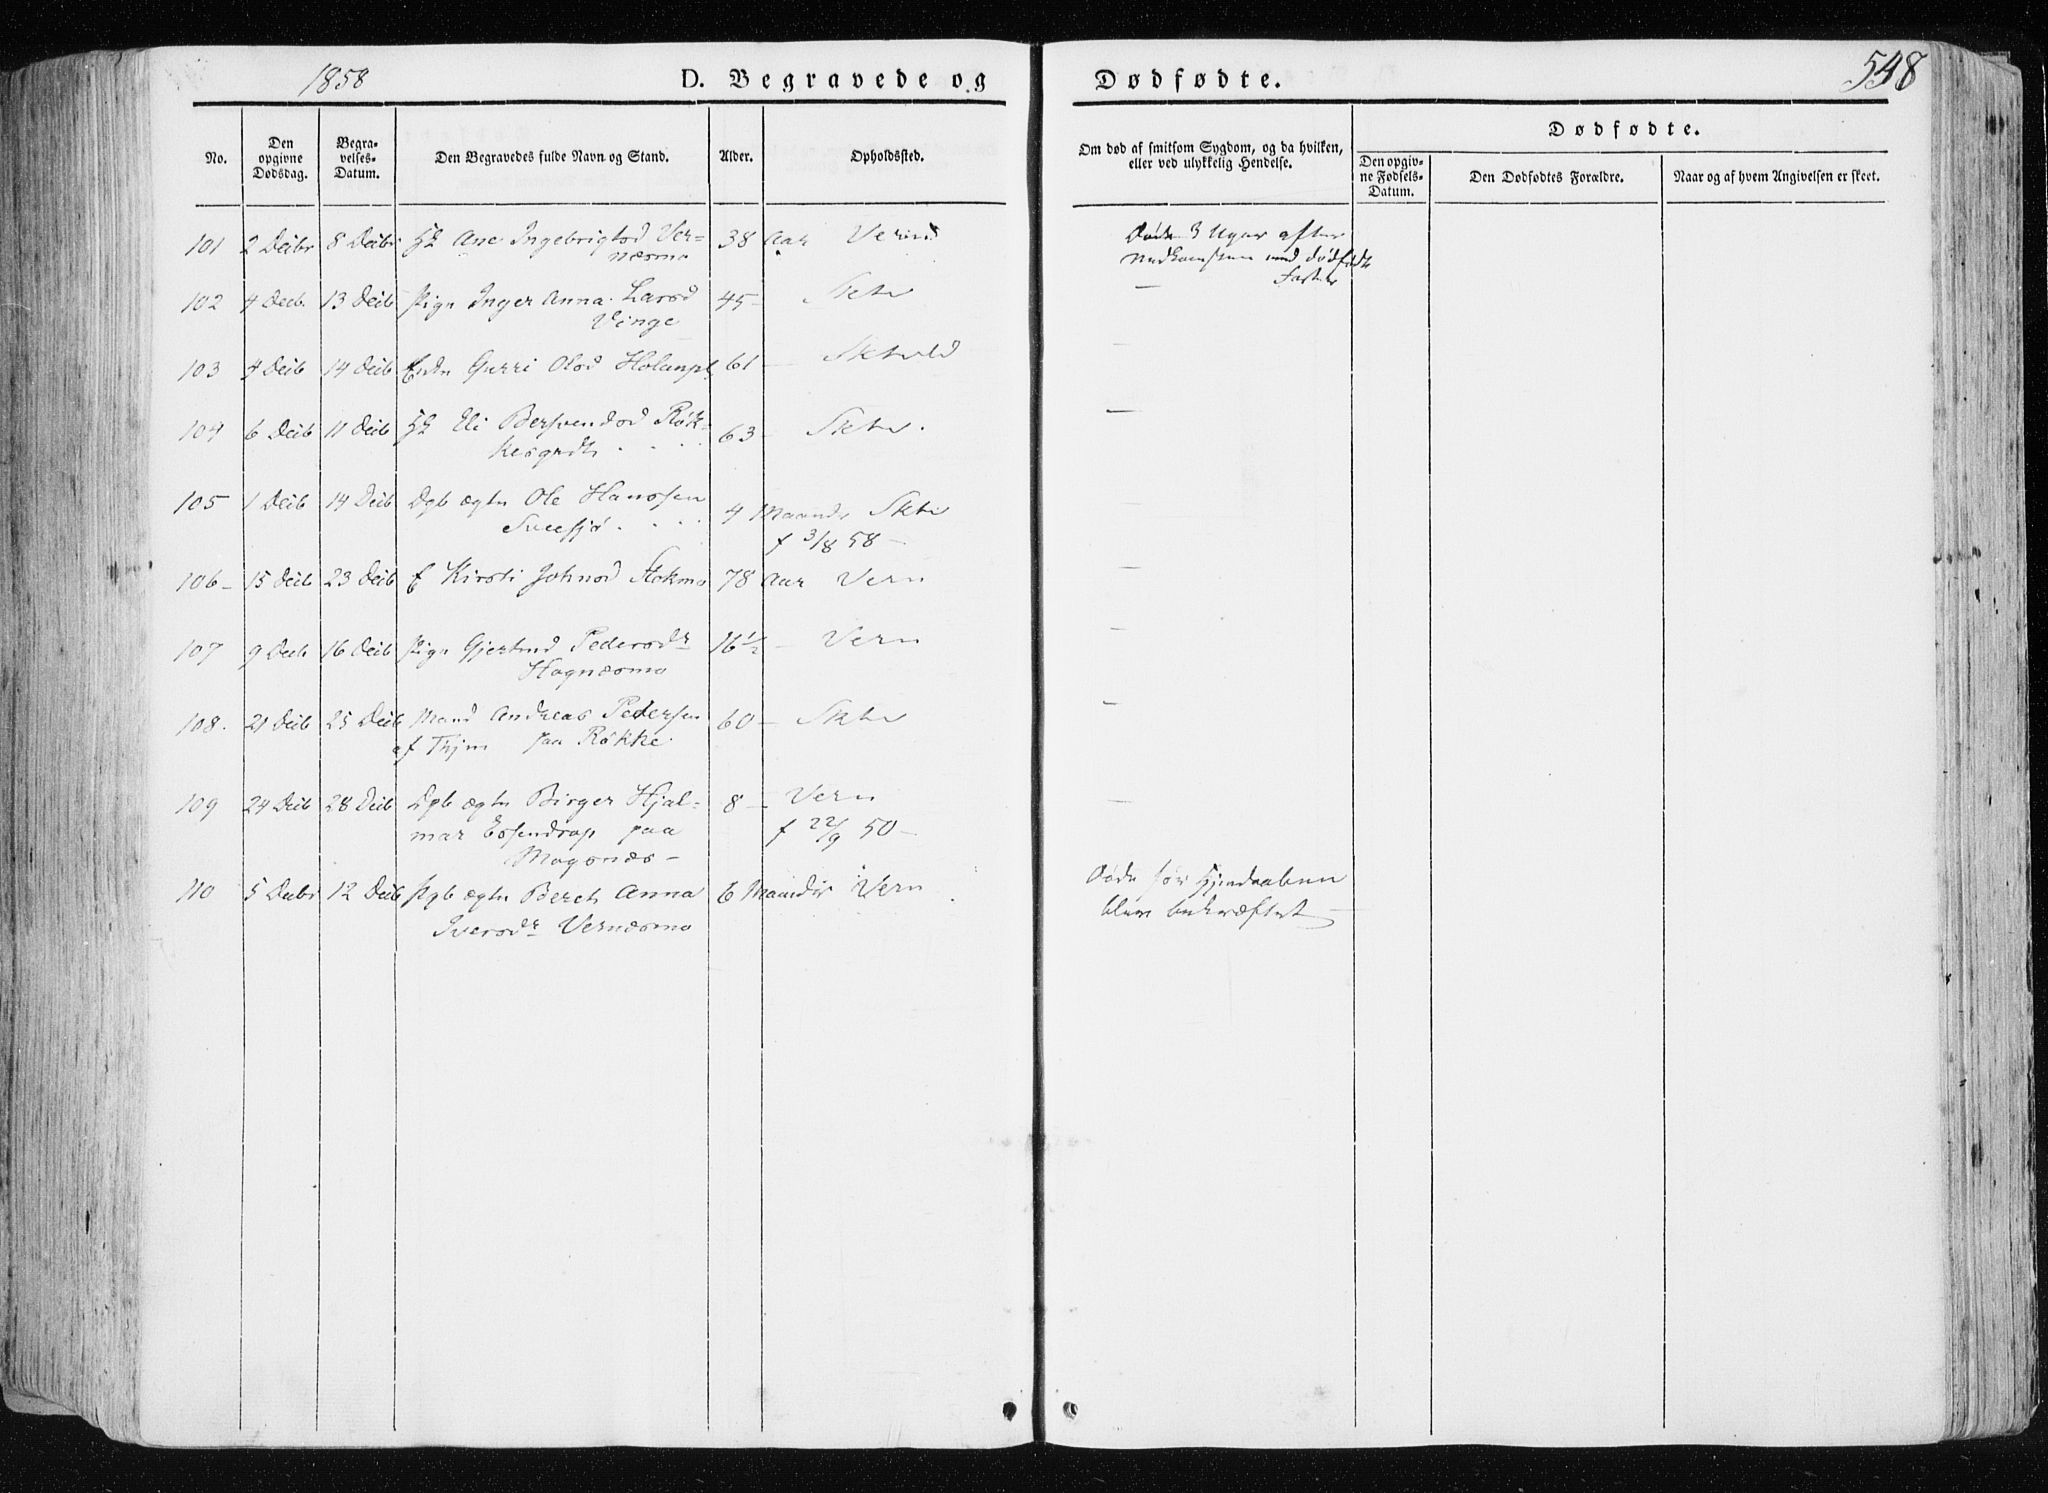 1858
D. Begravede og
Dødfødte.
548
No.
Den opgivne Dødsdag.
Begravelses-Datum.
Den Begravedes fulde Navn og Stand.
Alder.
Opholdssted.
Om død af smitsom Sygdom, og da hvilken, eller ved ulykkelig Hendelse.
Dødfødte.
Den opgivne Fødsels-Datum.
Den Dødfødtes Forældre.
Naar og af hvem Angivelsen er skeet.
101 2 Decbr 8 Decbr Ane Ingebrigtsd Ver- 38 Aar Vern
næsmo
Døde 3 Uger efter
Nedkomsten med dødfødt
Foster
102 4 Decb 13 Decb Pige Inger Anna Larsd 45 - Sktv -
Vinge
103 4 Decb 14 Decb Enke Gurri Olsd 61 - -
104 6 Decb 11 Decb Eli Bersvendsd Røk- 63 - Sktv. -
105 1 Decb 14 Decb Dgb ægte Ole Hanssen 4 Maaneder Sktv -
f 3/8 58 -
106 - 15 Decb 23 Decb E Kirsti Johnsd Stokmo 78 Aar Vern -
107 9 Decb 16 Decb Pige Gjertrud Pedersdr 16 1/2 - Vern -
108. 21 Decb 25 Decb Mand Andreas Pedersen 60 - Sktv -
af Thjem paa Røkke.
109 24 Decb 28 Decb Dgb ægte Birger Hjal- 8 - Vern -
mar Essendrop paa f 22/9 50 -
Mogsnæs -
110 5 Decbr 12 Decb Pgb ægte Beret Anna 6 Maaneder Vern
Iversdr Vernæsmo
Døde før Hjemdaaben
blev bekræftet -